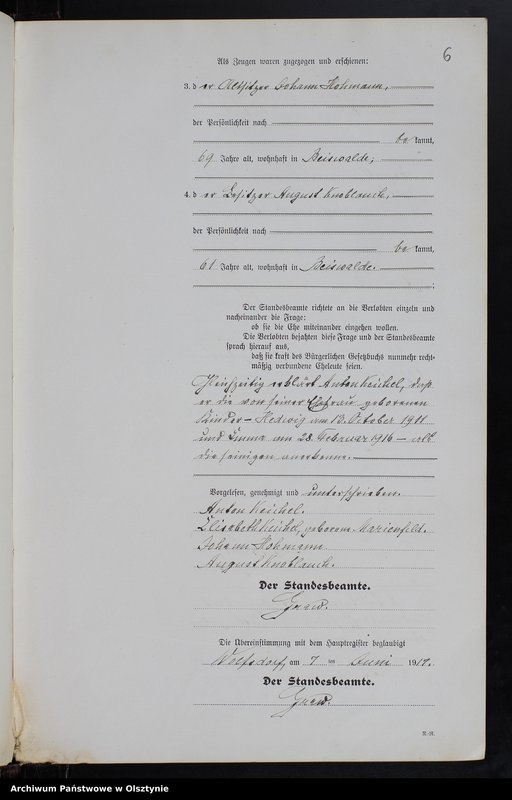 6
Als Zeugen waren zugezogen und erschienen:
3. d er Altsitzer Johann Hohmann,
der Persönlichkeit nach
be kannt,
69 Jahre alt, wohnhaft in Beiswalde;
4. d er Besitzer August Knoblauch,
der Persönlichkeit nach
be kannt,
61 Jahre alt, wohnhaft in Beiswalde.
Der Standesbeamte richtete an die Verlobten einzeln und
nacheinander die Frage:
ob sie die Ehe miteinander eingehen wollen.
Die Verlobten bejahten diese Frage und der Standesbeamte
sprach hierauf aus,
daß sie kraft des Bürgerlichen Gesetzbuchs nunmehr recht-
mäßig verbundene Eheleute seien.
Gleichzeitig erklärt Anton Keichel, daß
er die von seiner Ehefrau geborenen
Kinder – Hedwig am 13. October 1911
und Emma am 28. Februar 1916 – als
die seinigen anerkenne.
Vorgelesen, genehmigt und unterschrieben.
Anton Keichel.
Elisabeth Keichel, geborene Marienfeld.
Johann Hohmann
August Knoblauch.
Der Standesbeamte.
Die Übereinstimmung mit dem Hauptregister beglaubigt
Wolfsdorf, am 7 ten Juni 1917.
Der Standesbeamte.
Archiwum Państwowe w Olsztynie